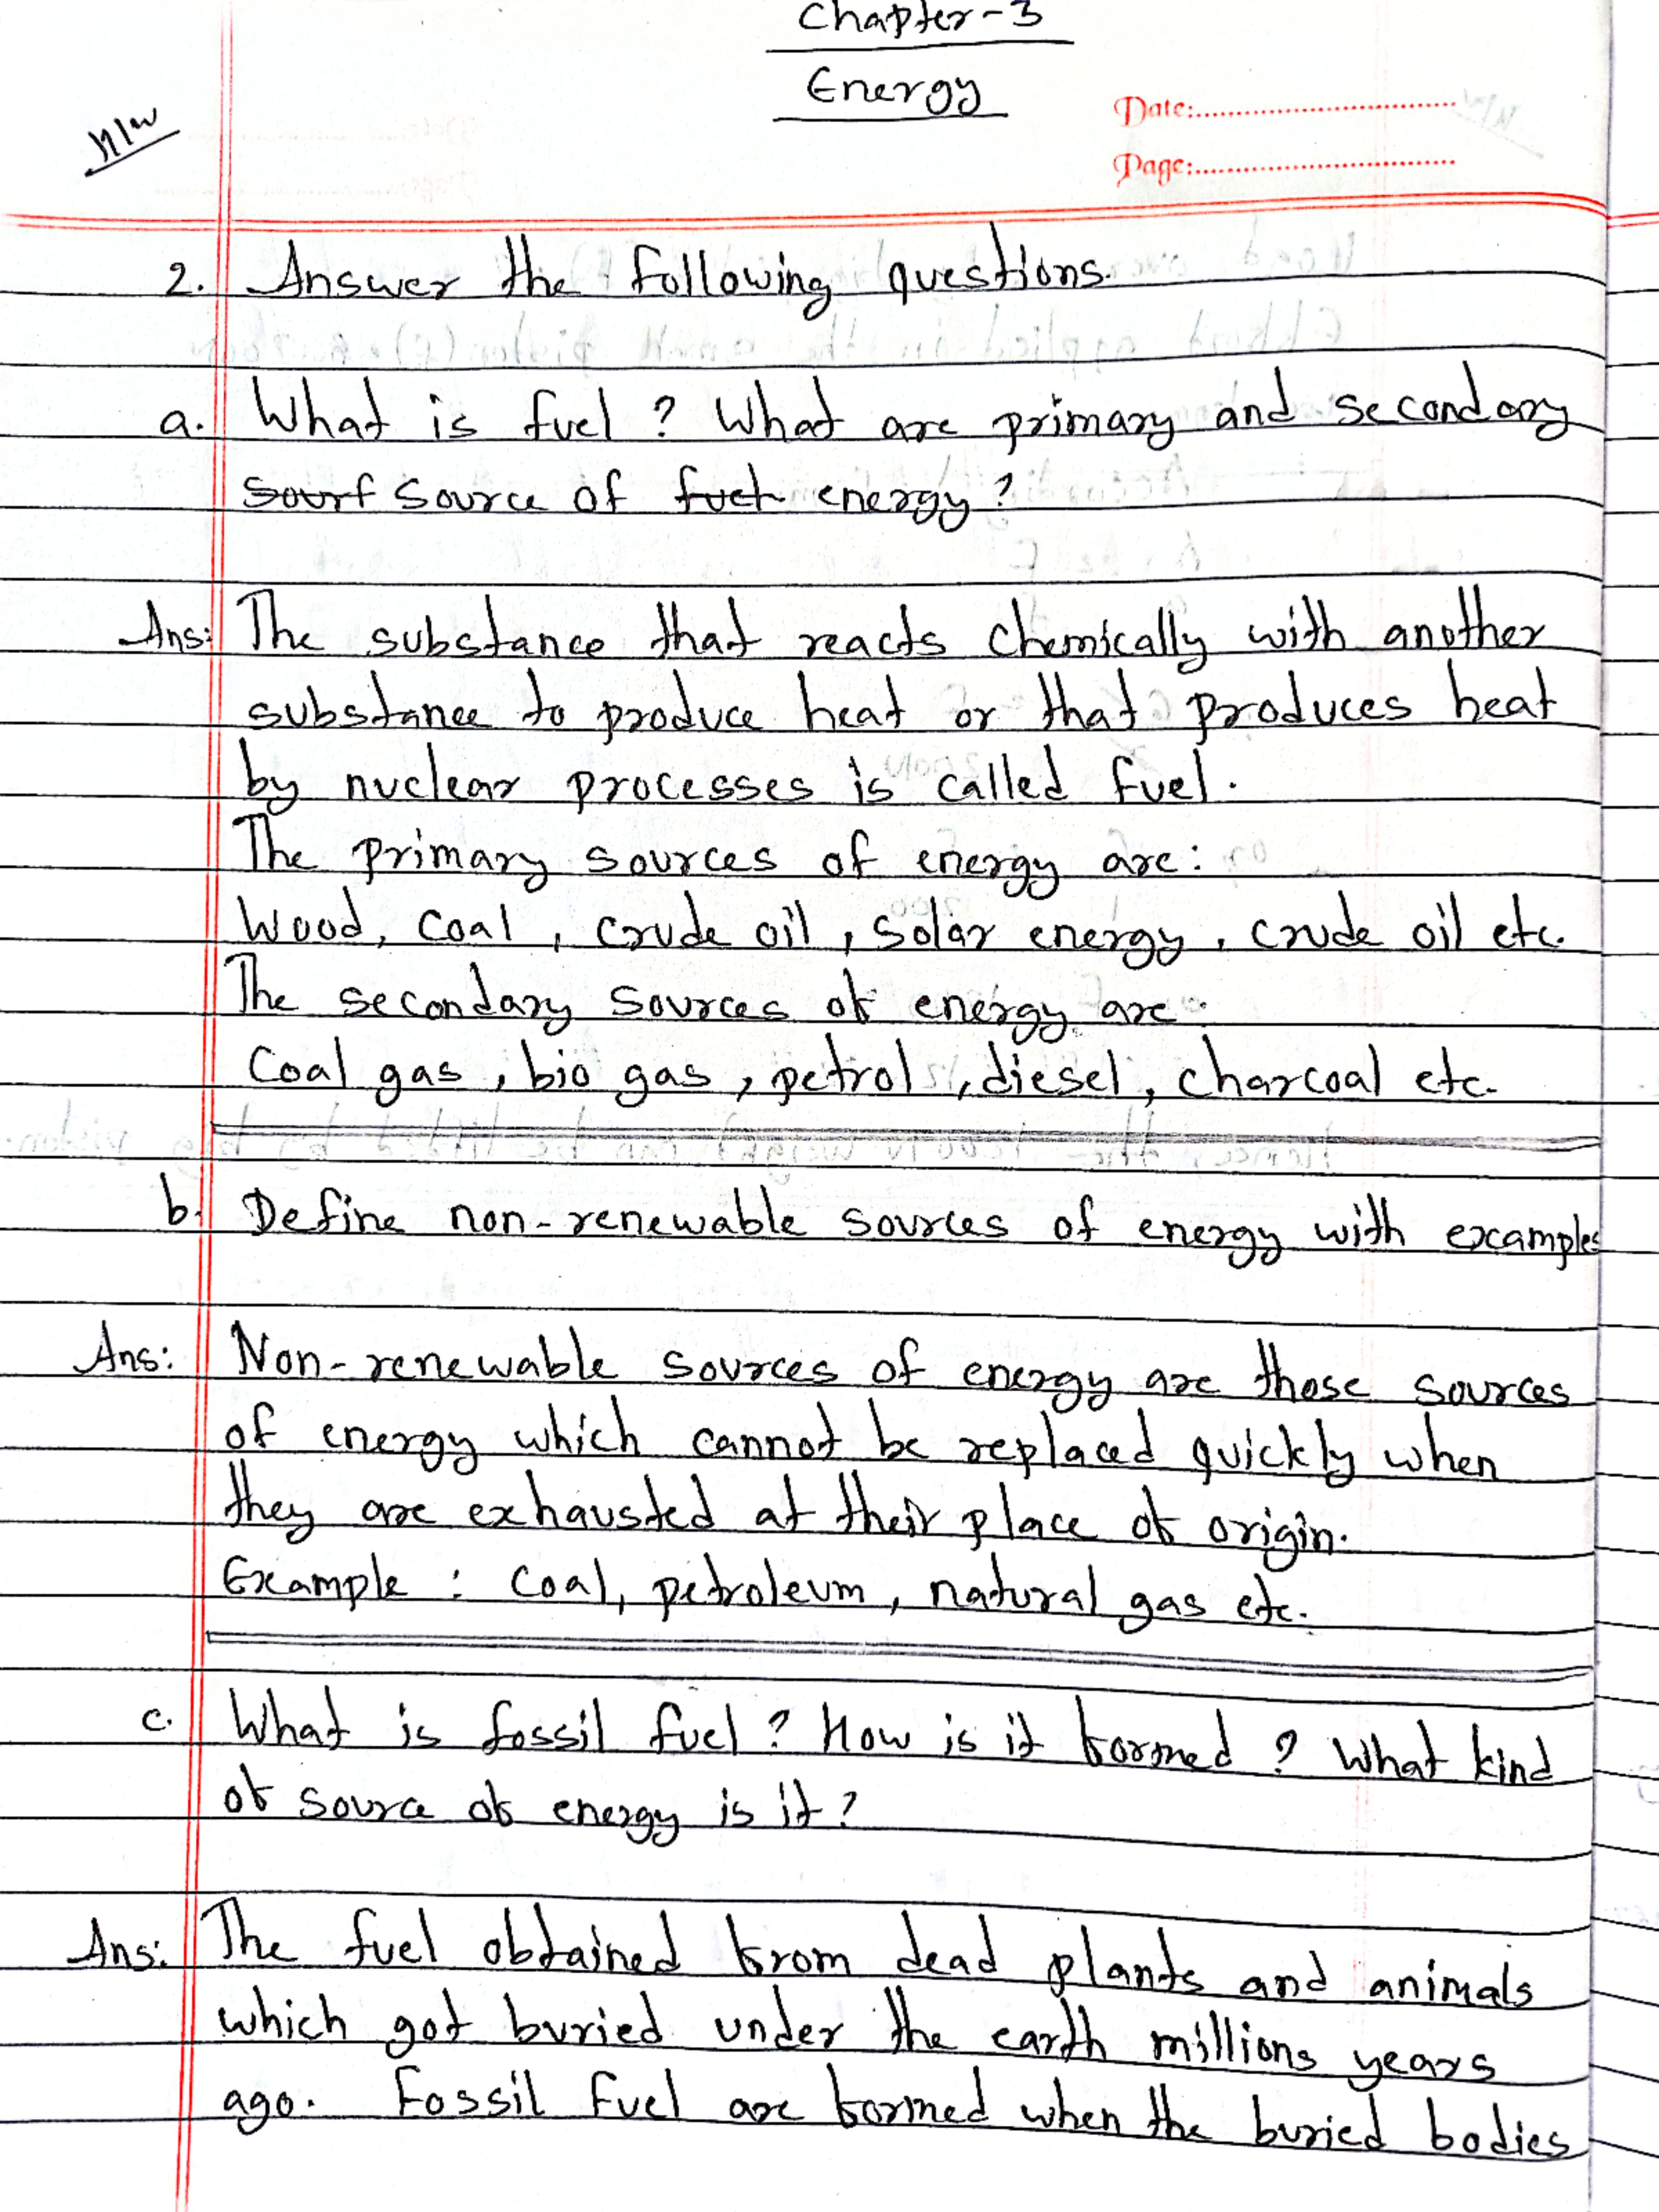 Chapter-3
Energy
H/w
Date:
Page:
2. Answer the following questions.
a. What is fuel ? What are primary and secondary
sourf source of fuel energy ?
Ans: The substance that reacts chemically with another
substance to produce heat or that produces heat
by nuclear processes is called fuel.
The primary sources of energy are:
Wood, coal, crude oil, solar energy, crude oil etc.
The secondary sources of energy are:
Coal gas, bio gas, petrol, diesel, charcoal etc.
b. Define non-renewable sources of energy with examples
Ans: Non-renewable sources of energy are those sources
of energy which cannot be replaced quickly when
they are exhausted at their place of origin.
Example : coal, petroleum, natural gas etc.
c. What is fossil fuel ? How is it formed ? What kind
of source of energy is it ?
Ans: The fuel obtained from dead plants and animals
which got buried under the earth millions years
ago. Fossil fuel are formed when the buried bodies